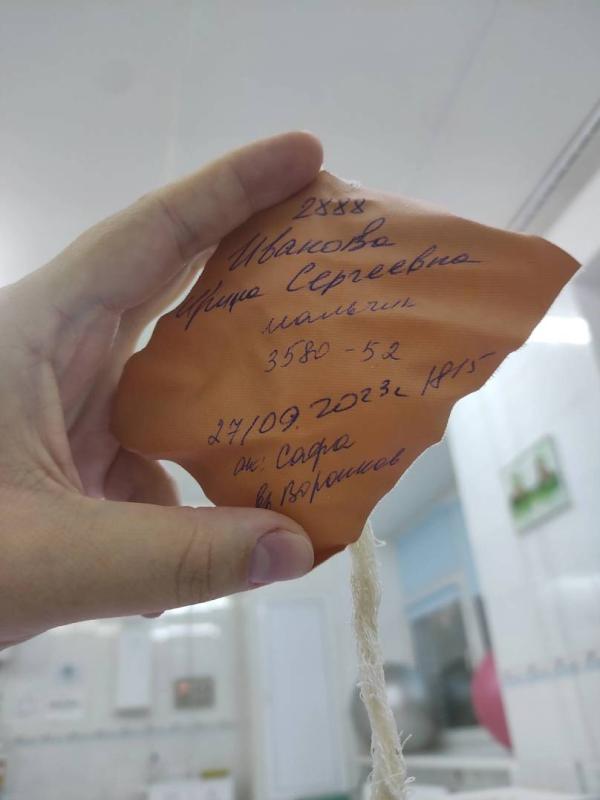 2888
Иванова
Ирина Сергеевна
мальчик
3580-52
27/09.2023г 1815
ак: Сафа
вр Воронков